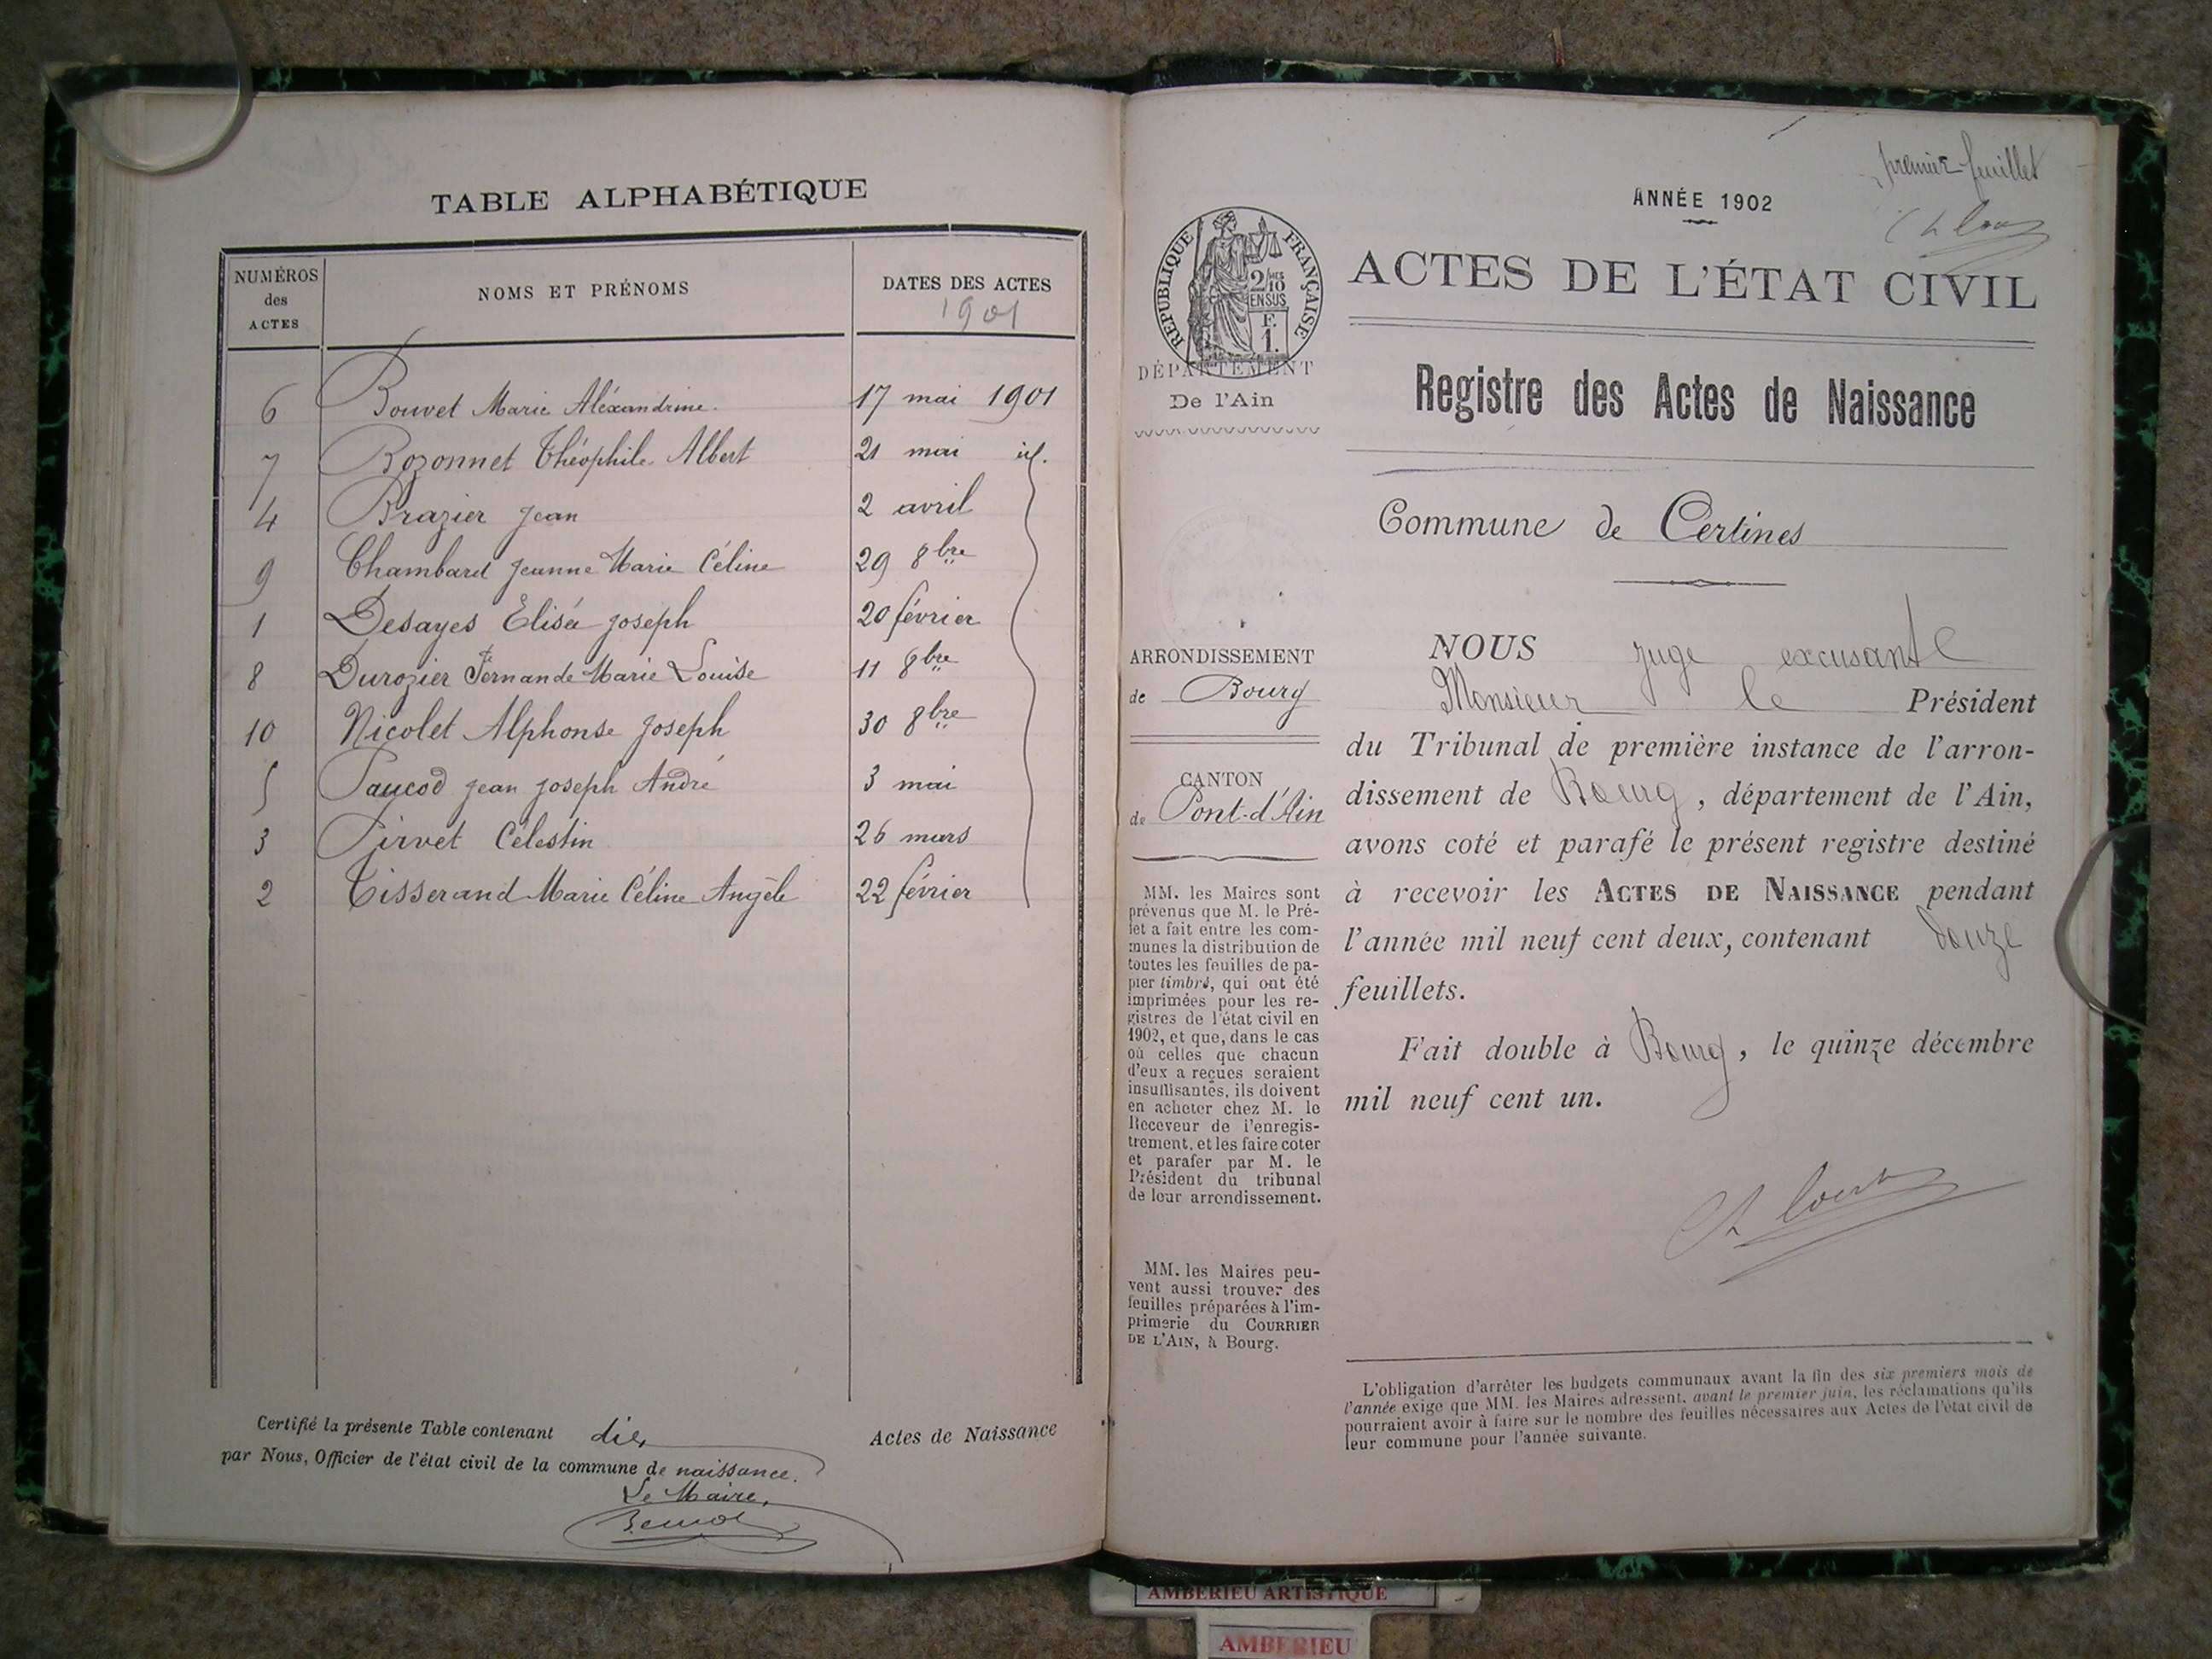 TABLE ALPHABÉTIQUE
NUMÉROS des ACTES
NOMS ET PRÉNOMS
DATES DES ACTES
1901
6 Bouvet Marie Aléxandrine. 17 mai 1901
7 Bozonnet Théophile Albert 21 mai id.
4 Brazier Jean 2 avril
9 Chambard Jeanne Marie Céline 29 8bre
1 Desayes Elisée Joseph 20 février
8 Durozier Fernande Marie Louise 11 8bre
10 Nicolet Alphonse Joseph 30 8bre
5 Paucod Jean Joseph André 3 mai
3 Pirvet Célestin 26 mars
2 Tisserand Marie Céline Angèle 22 février
Certifié la présente Table contenant dix Actes de Naissance
par Nous, Officier de l'état civil de la commune de naissance.
Le Maire,
premier feuillet
ANNÉE 1902
RÉPUBLIQUE FRANÇAISE
2/10 EN SUS
F. 1.
ACTES DE L'ÉTAT CIVIL
DÉPARTEMENT
De l'Ain
Registre des Actes de Naissance
Commune de Certines
ARRONDISSEMENT
de Bourg
CANTON
de Pont-d'Ain
MM. les Maires sont
prévenus que M. le Pré-
fet a fait entre les com-
munes la distribution de
toutes les feuilles de pa-
pier timbré, qui ont été
imprimées pour les re-
gistres de l'état civil en
1902, et que, dans le cas
où celles que chacun
d'eux a reçues seraient
insuffisantes, ils doivent
en acheter chez M. le
Receveur de l'enregis-
trement, et les faire coter
et parafer par M. le
Président du tribunal
de leur arrondissement.
MM. les Maires peu-
vent aussi trouver des
feuilles préparées à l'im-
primerie du COURRIER
DE L'AIN, à Bourg.
NOUS juge excusant
Monsieur le Président
du Tribunal de première instance de l'arron-
dissement de Bourg, département de l'Ain,
avons coté et parafé le présent registre destiné
à recevoir les ACTES DE NAISSANCE pendant
l'année mil neuf cent deux, contenant douze
feuillets.
Fait double à Bourg, le quinze décembre
mil neuf cent un.
L'obligation d'arrêter les budgets communaux avant la fin des six premiers mois de
l'année exige que MM. les Maires adressent, avant le premier juin, les réclamations qu'ils
pourraient avoir à faire sur le nombre des feuilles nécessaires aux Actes de l'état civil de
leur commune pour l'année suivante.
AMBERIEU ARTISTIQUE
AMBERIEU